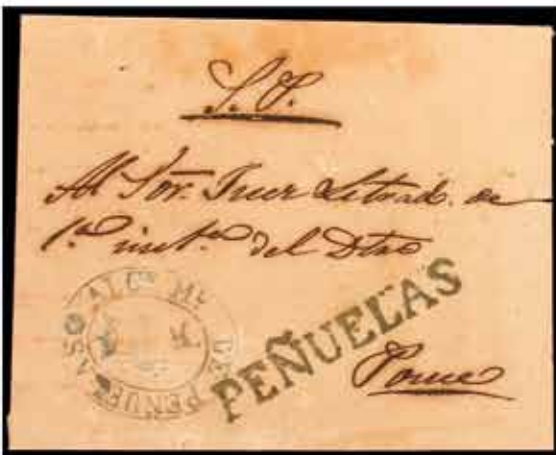 S. O.
Al Sor. Juez Letrado de
1.ª inst.ª del Dtro
ALC.ª M.R DE PEÑUELAS
PEÑUELAS
Ponce